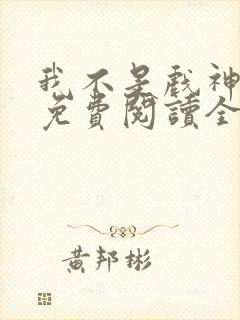 我不是戏神
免費閱讀全
黄邦彬